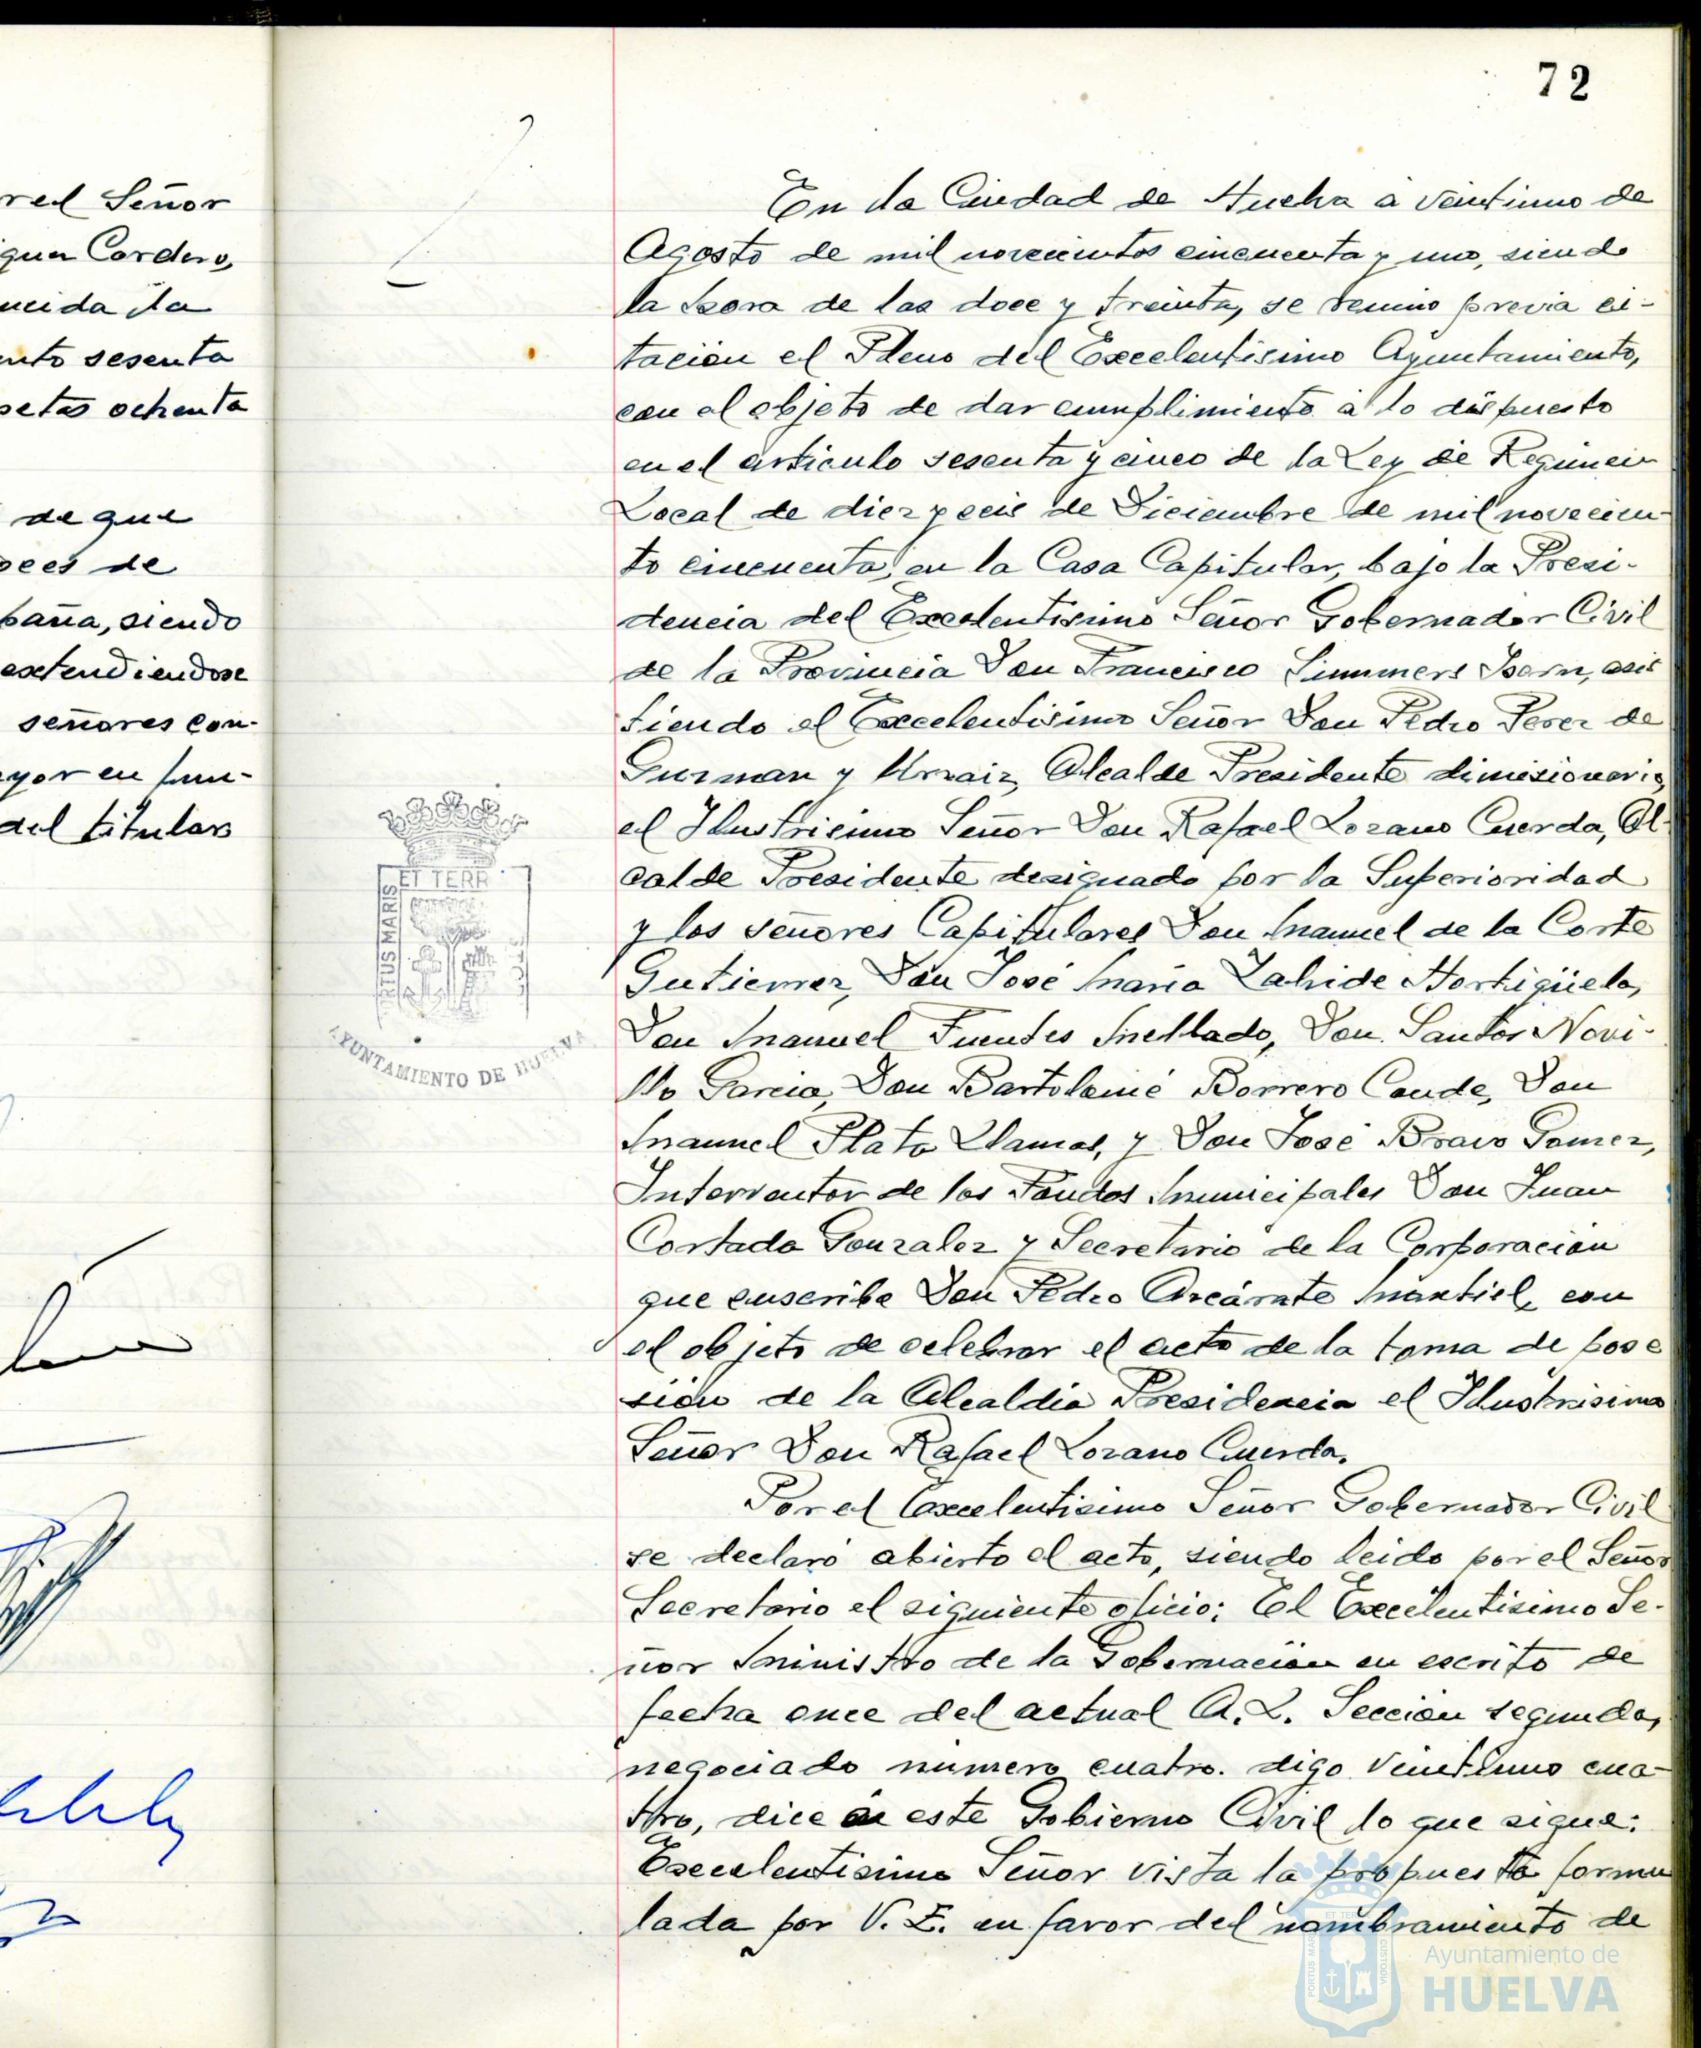 72
rel Señor
guer Cordero,
ucida la
nto sesenta
setas ochenta
de que
oces de
paña, siendo
extendiendose
señores con-
yor en fun-
del titular
En la Ciudad de Huelva a veintiuno de
Agosto de mil novecientos cincuenta y uno, siendo
la hora de las doce y treinta, se reunio previa ci-
tación el Pleno del Excelentisimo Ayuntamiento,
con el objeto de dar cumplimiento a lo dispuesto
en el articulo sesenta y cinco de la Ley de Regimen
Local de diez y seis de Diciembre de mil novecien-
to cincuenta, en la Casa Capitular, bajo la Presi-
dencia del Excelentisimo Señor Gobernador Civil
de la Provincia Don Francisco Summers Isern, asis
tiendo el Excelentisimo Señor Don Pedro Perez de
Guzman y Urzaiz, Alcalde Presidente dimisionario,
el Ilustrisimo Señor Don Rafael Lozano Cuerda, Al-
calde Presidente designado por la Superioridad
y los señores Capitulares Don Manuel de la Corte
Gutierrez, Don José Maria Zalvide Hortigüela,
Don Manuel Fuentes Mellado, Don Santos Novi-
llo Garcia, Don Bartolomé Borrero Conde, Don
Manuel Plata Llamas, y Don José Bravo Gomez,
Interventor de los Fondos Municipales Don Juan
Cortada Gonzalez y Secretario de la Corporación
que suscribe Don Pedro Ascárate Mantiel, con
el objeto de celebrar el acto de la toma de pose
sión de la Alcaldia Presidencia el Ilustrisimo
Señor Don Rafael Lozano Cuerda.
Por el Excelentisimo Señor Gobernador Civil
se declaró abierto el acto, siendo leido por el Señor
Secretario el siguiente oficio: El Excelentisimo Se-
ñor Ministro de la Gobernación en escrito de
fecha once del actual A.L. Sección segunda,
negociado número cuatro. digo veintiuno cua-
tro, dice a este Gobierno Civil lo que sigue:
Excelentisimo Señor vista la propuesta formu
lada por V.E. en favor del nombramiento de
ET TERR
RTUS MARIS
AYUNTAMIENTO DE HUELVA
Ayuntamiento de
HUELVA